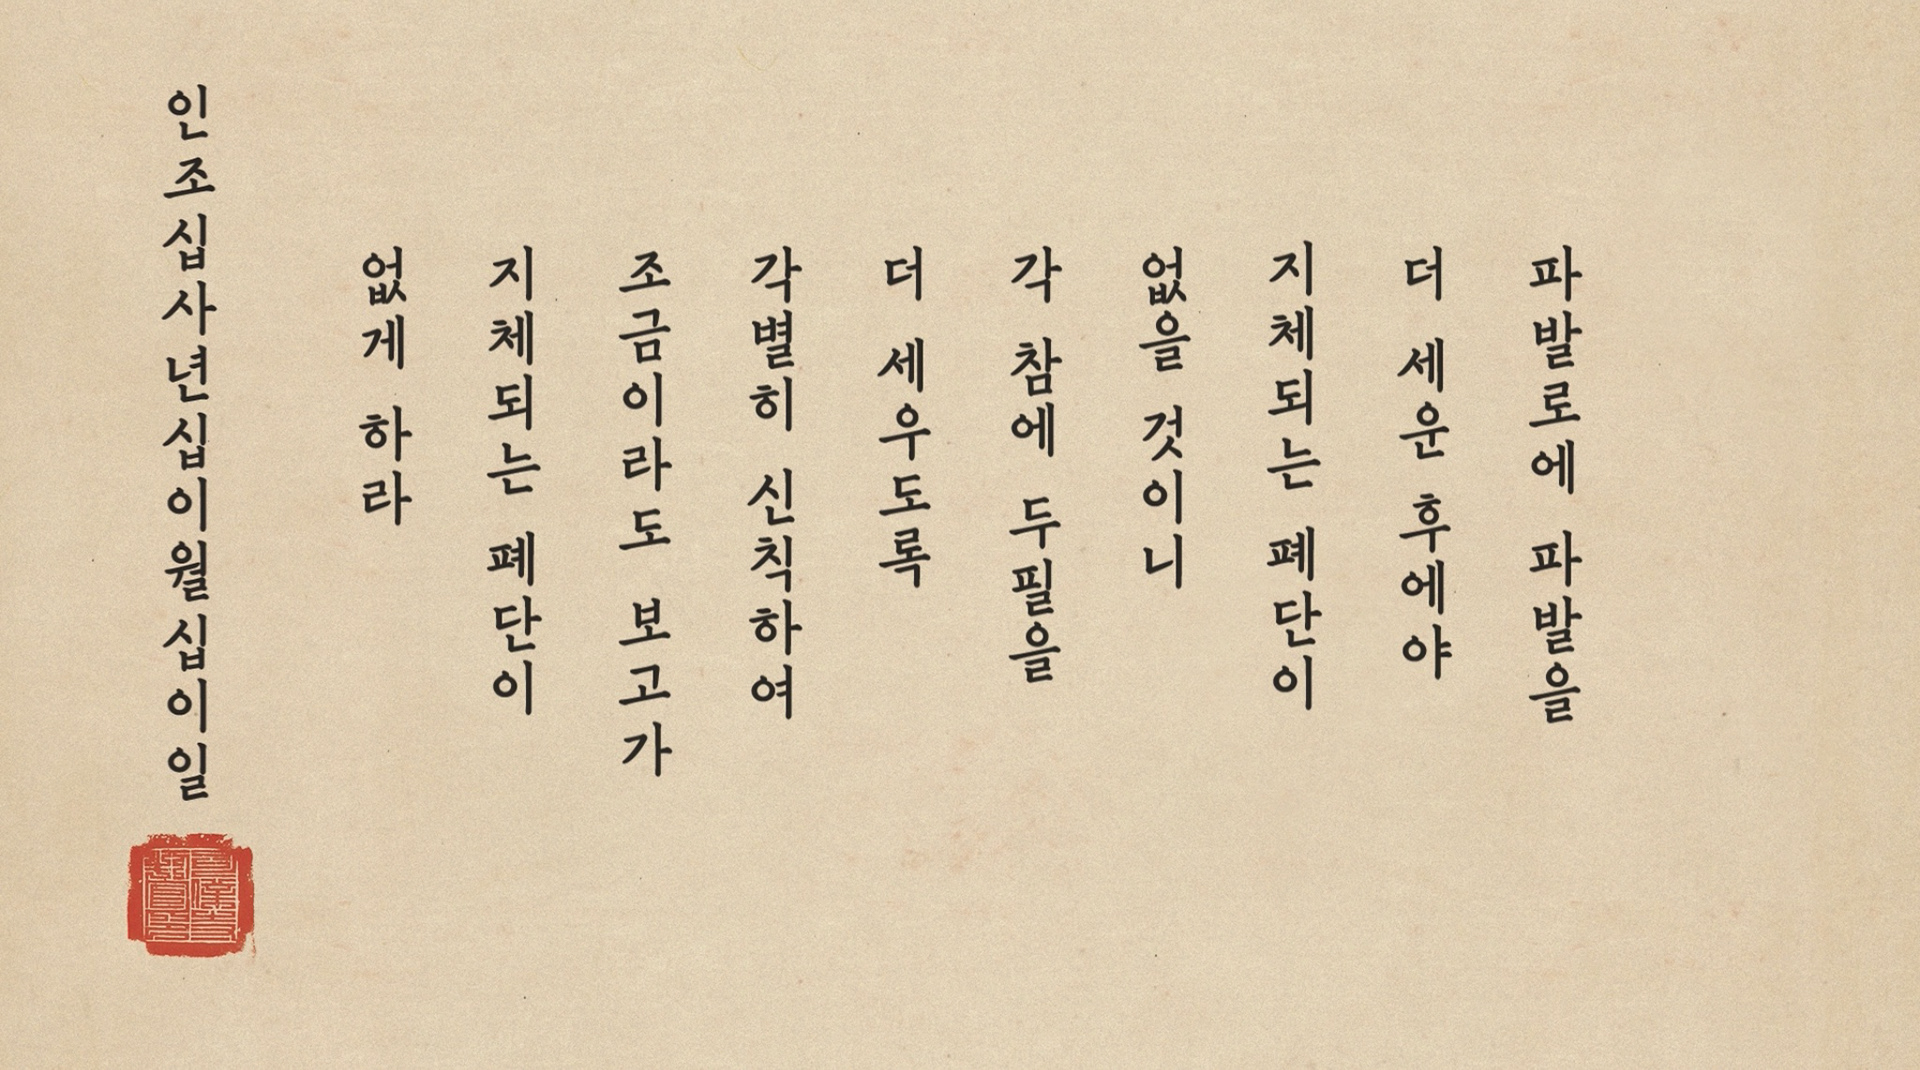 파발로에 파발을
더 세운 후에야
지체되는 폐단이
없을 것이니
각 참에 두필을
더 세우도록
각별히 신칙하여
조금이라도 보고가
지체되는 폐단이
없게 하라
인조십사년십이월십이일